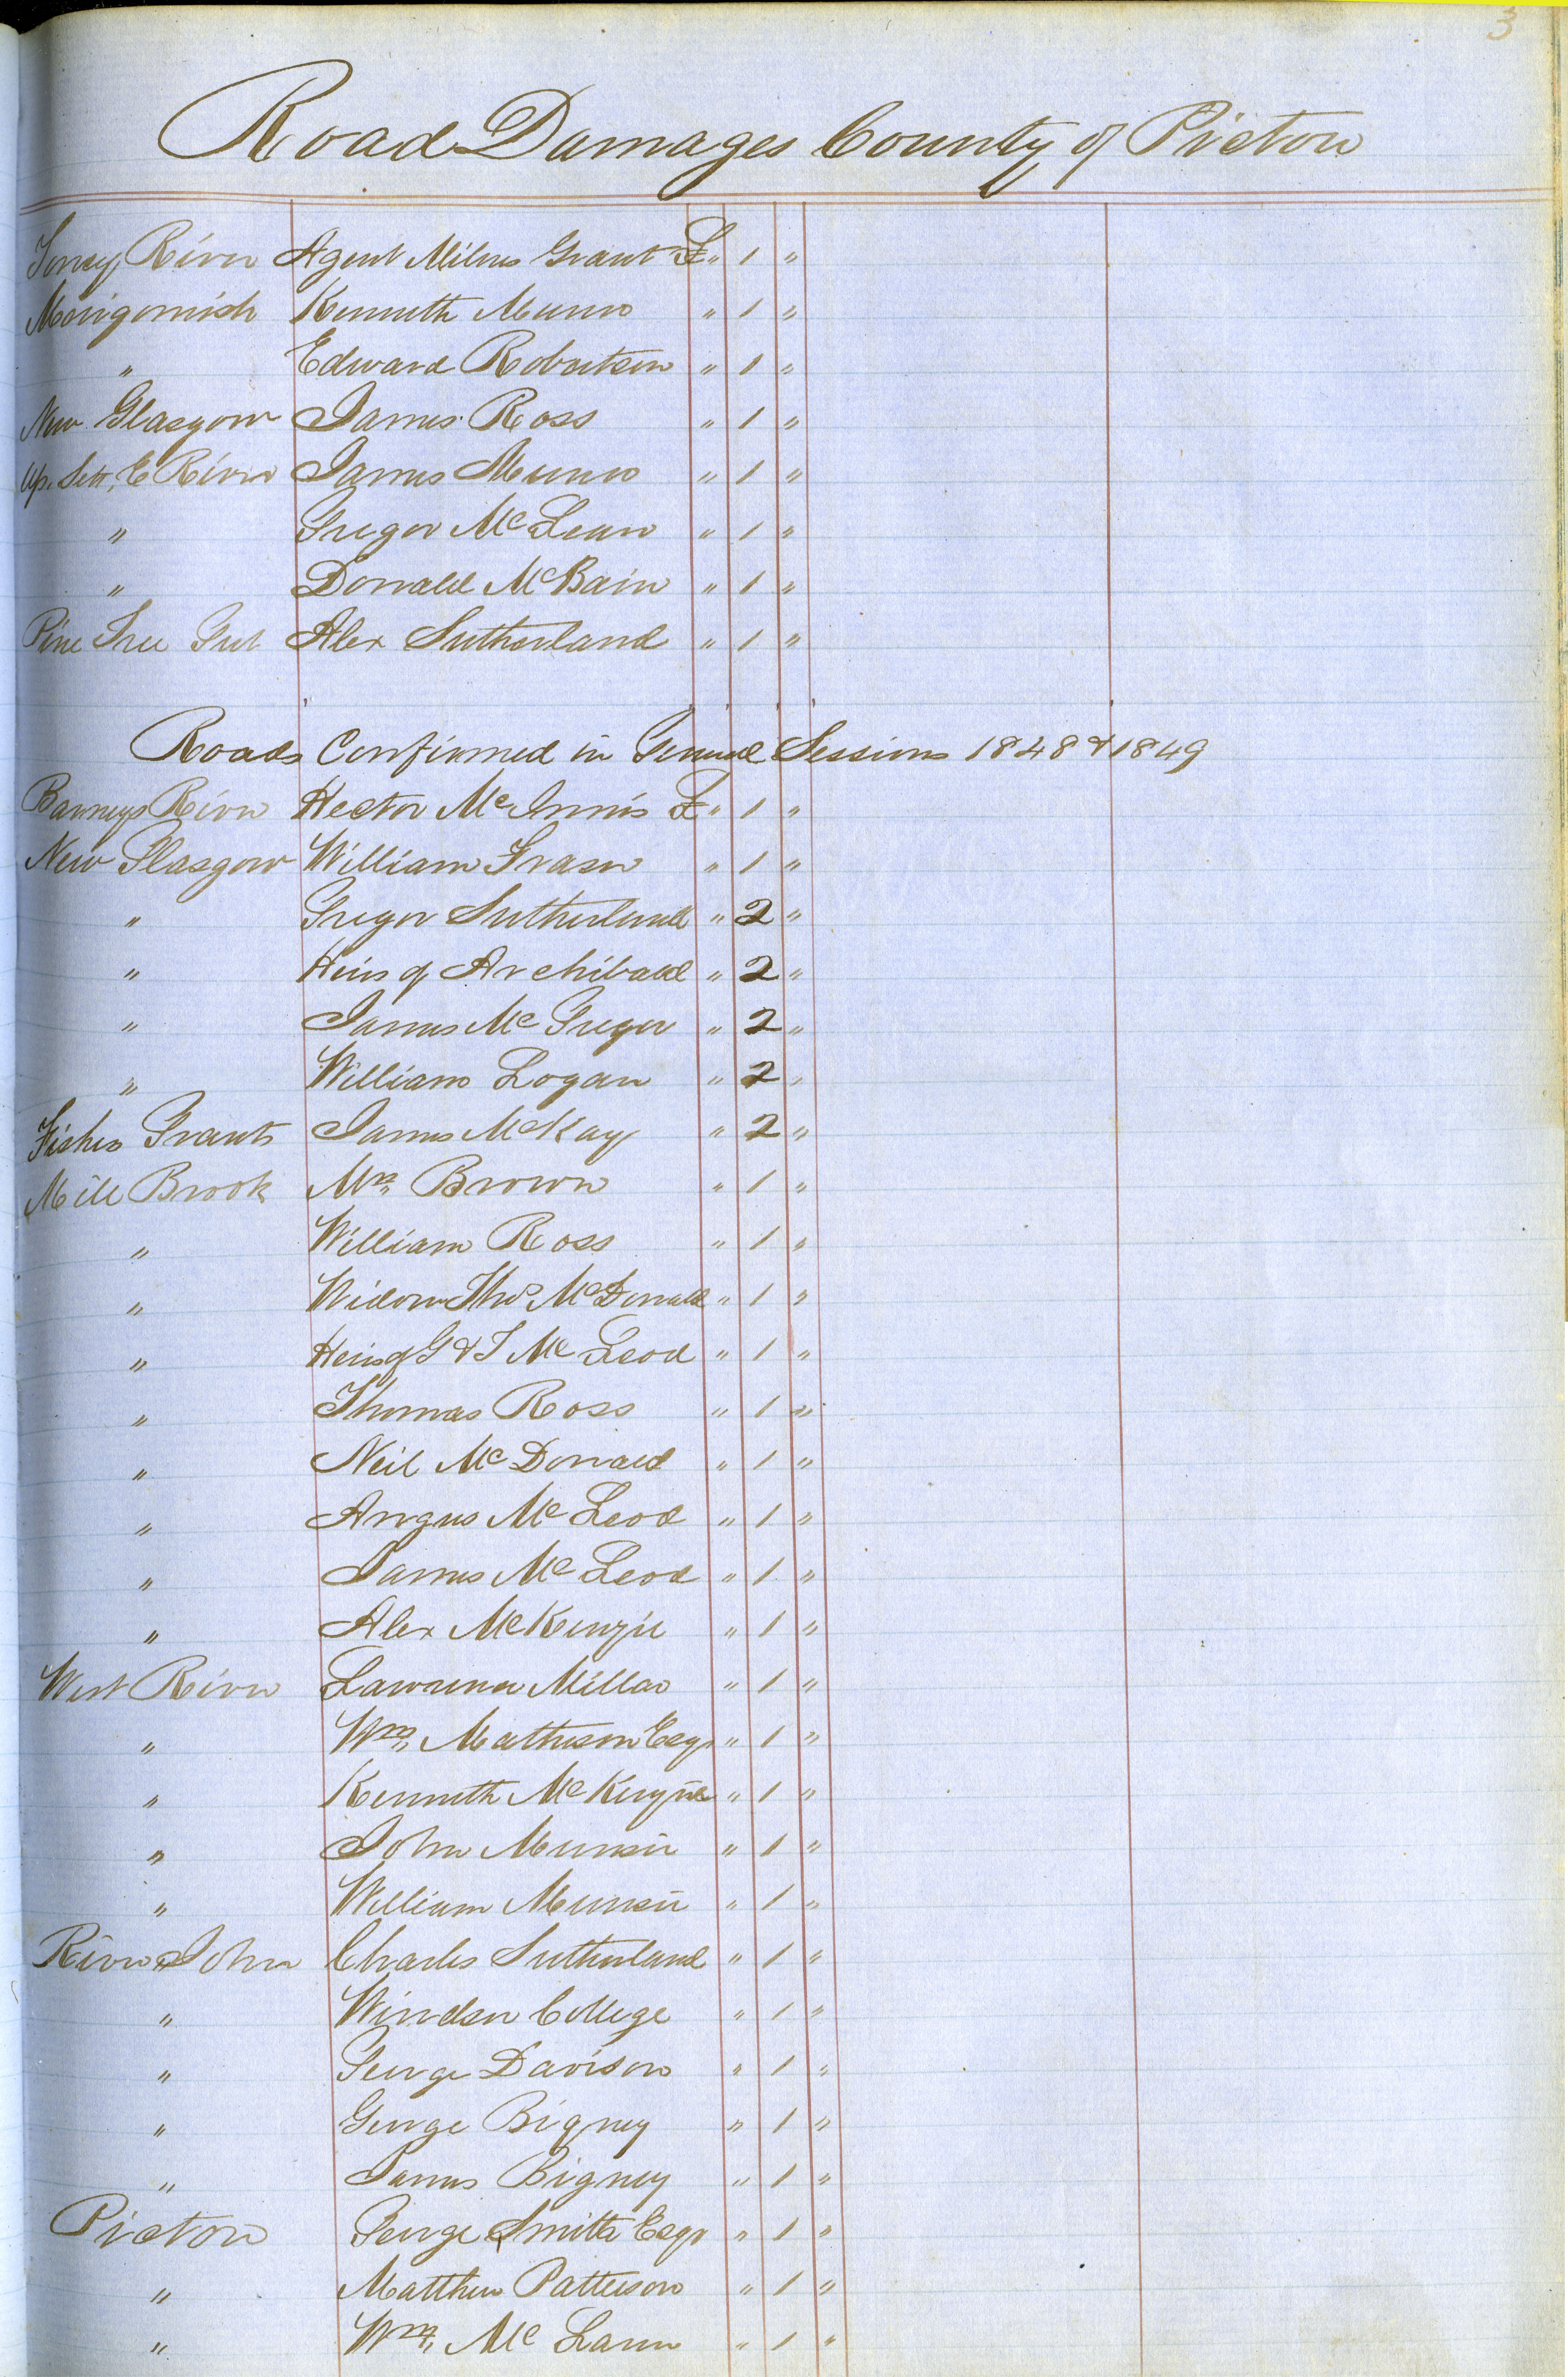 3
Road Damages County of Pictou
Toney River Agent Milnes Grant £ " 1 "
Merigomish Kenneth Munro " 1 "
" Edward Robertson " 1 "
New Glasgow James Ross " 1 "
Up. Sett, E River James Munro " 1 "
" Gregor McLean " 1 "
" Donald McBain " 1 "
Pine Tree Gut Alex Sutherland " 1 "
Roads Confirmed in General Sessions 1848 & 1849
Barneys River Hector McInnis £ " 1 "
New Glasgow William Fraser " 1 "
" Gregor Sutherland " 2 "
" Heirs of Archibald " 2 "
" James McGregor " 2 "
" William Logan " 2 "
Fishers Grants James McKay " 2 "
Mill Brook Wm Brown " 1 "
" William Ross " 1 "
" Widow Thos McDonald " 1 "
" Heirs of G & J McLeod " 1 "
" Thomas Ross " 1 "
" Neil McDonald " 1 "
" Angus McLeod " 1 "
" James McLeod " 1 "
" Alex McKenzie " 1 "
West River Lawrence Millar " 1 "
" Wm, Matheson Esqr " 1 "
" Kenneth McKenzie " 1 "
" John Munsie " 1 "
" William Munsie " 1 "
River John Charles Sutherland " 1 "
" Windsor College " 1 "
" George Davison " 1 "
" George Bigney " 1 "
" James Bigney " 1 "
Pictou George Smith Esqr " 1 "
" Matthew Patterson " 1 "
" Wm, McLaren " 1 "